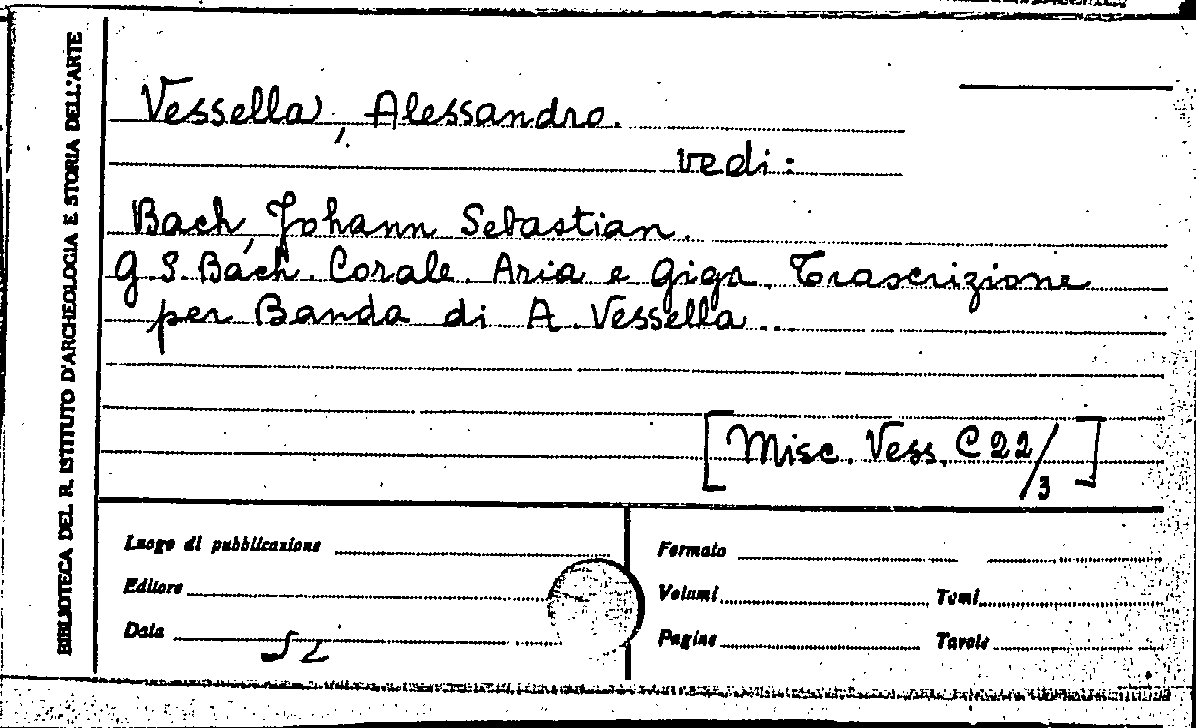 BIBLIOTECA DEL R. ISTITUTO D'ARCHEOLOGIA E STORIA DELL'ARTE
Vessella, Alessandro.
vedi:
Bach, Johann Sebastian.
G. S. Bach. Corale. Aria e Giga. Trascrizione
per Banda di A. Vessella..
[Misc. Vess. C 22/3]
Luogo di pubblicazione
Editore
Data
Formato
Volumi Tomi
Pagine Tavole